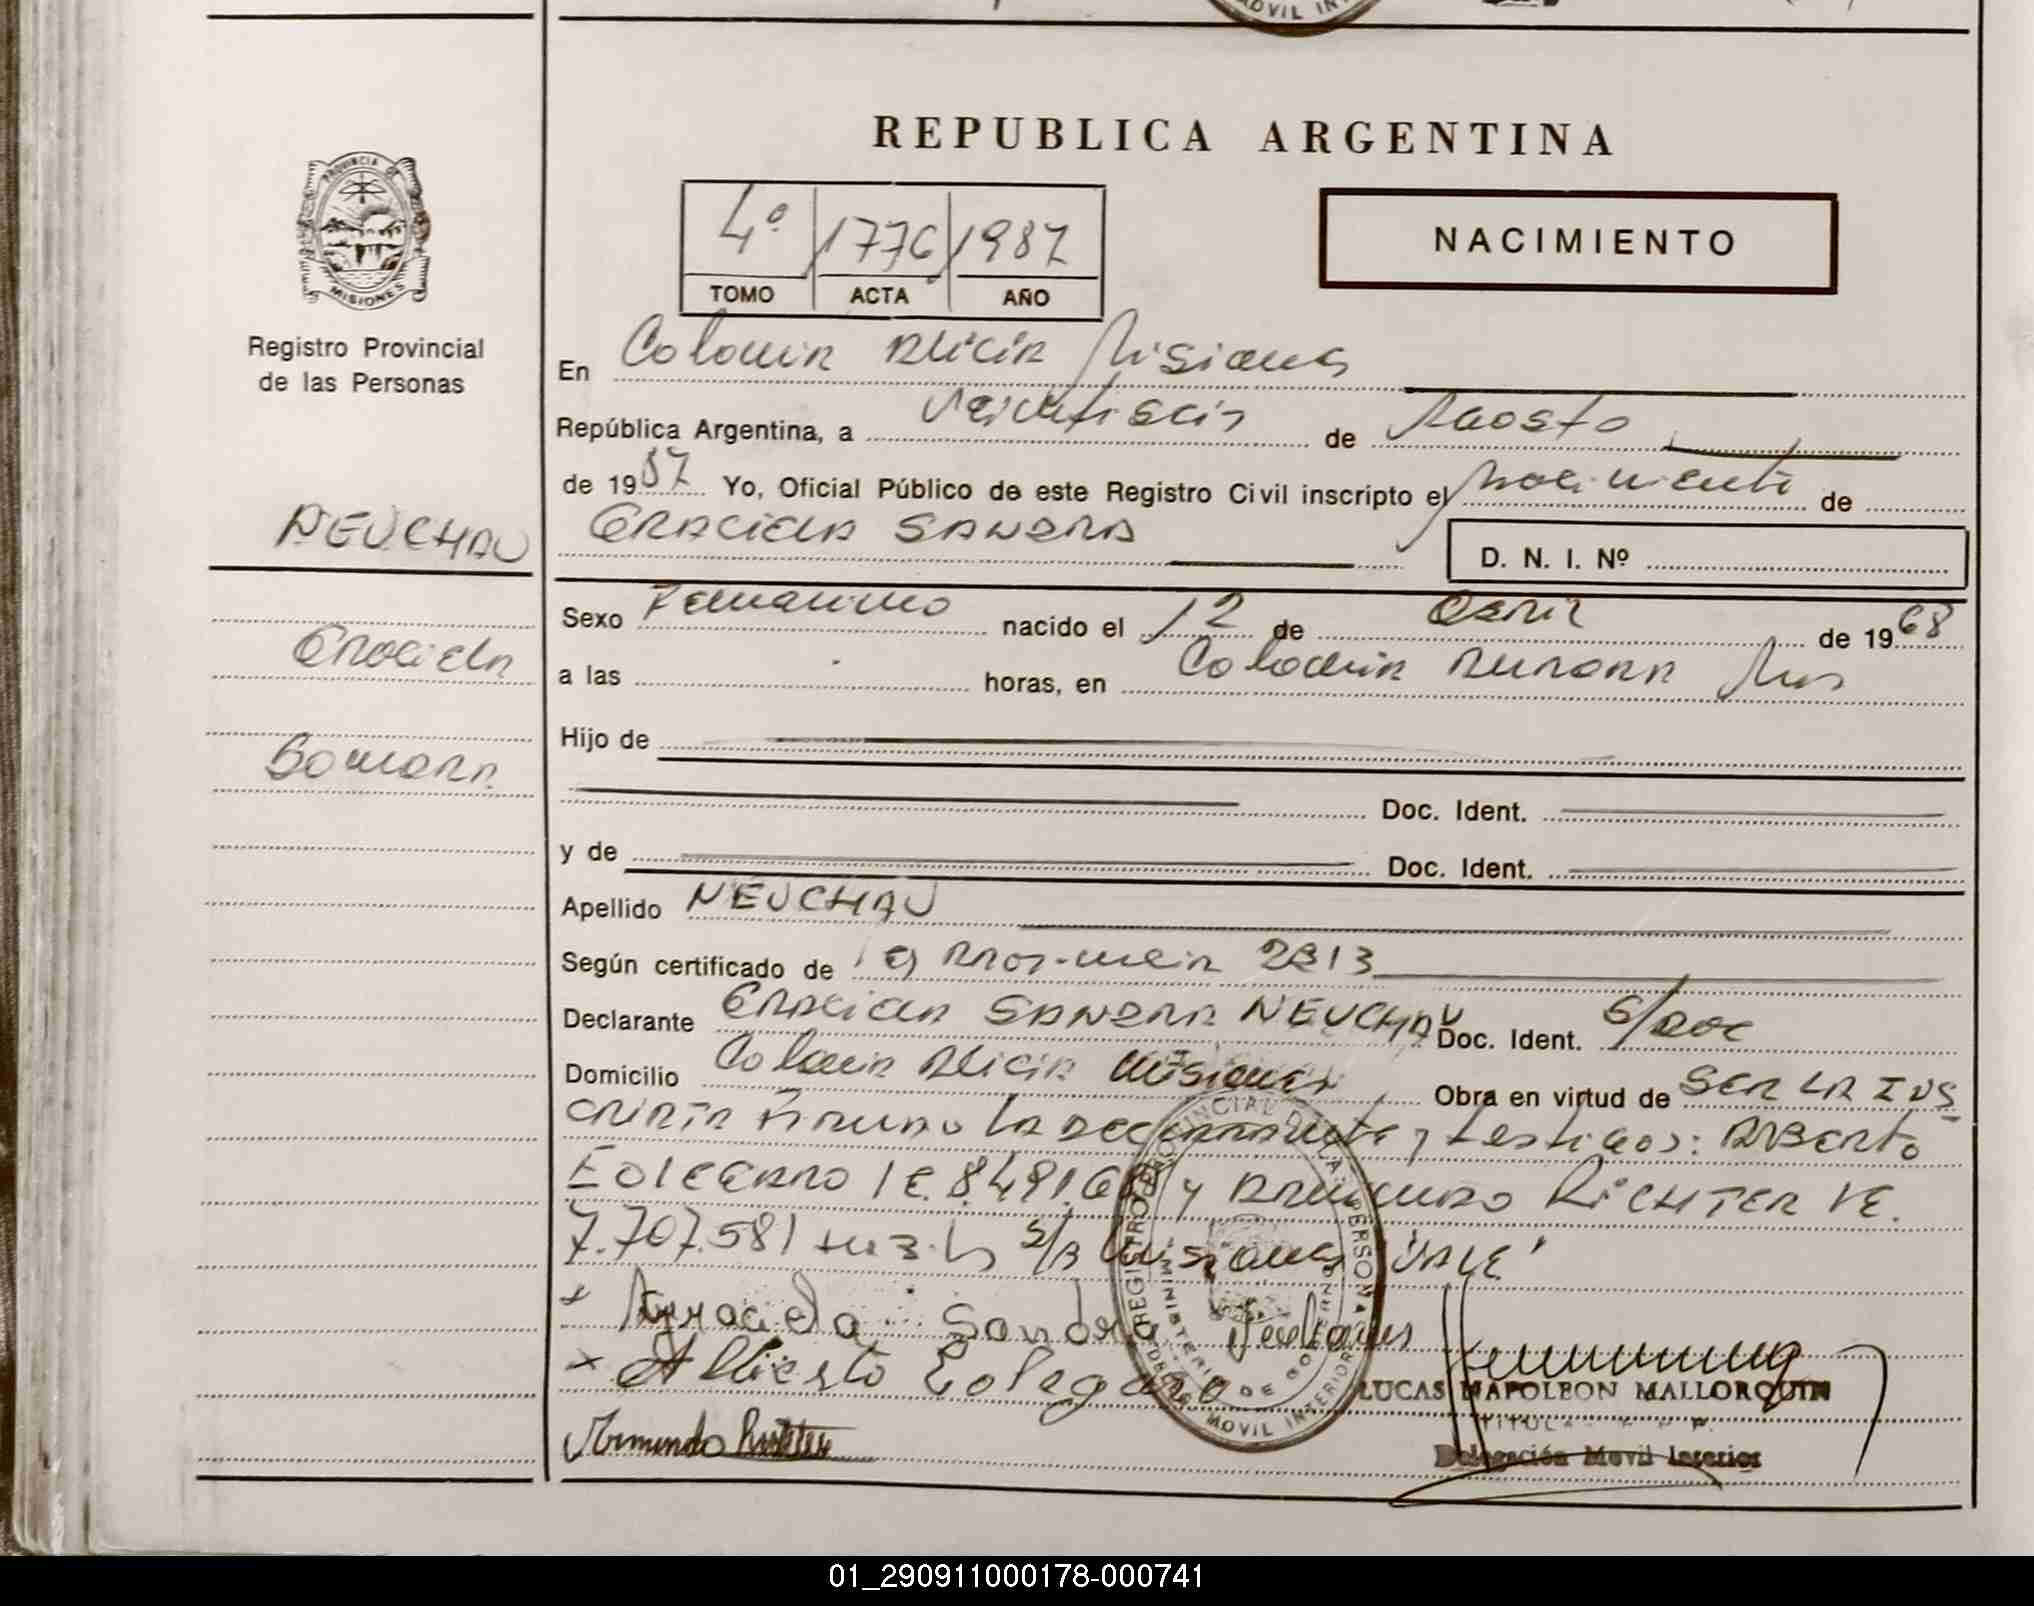 REPUBLICA ARGENTINA
PROVINCIA DE
MISIONES
Registro Provincial
de las Personas
4º 1776 1987
TOMO ACTA AÑO
NACIMIENTO
En Colonia Alicia Misiones
República Argentina, a Veintiseis de Agosto
de 1987 Yo, Oficial Público de este Registro Civil inscripto el nacimiento de
NEUCHAU
GRACIELA SANDRA
D. N. I. Nº
Graciela
Sexo Femenino nacido el 12 de Abril de 1968
a las horas, en Colonia Aurora Mns
Sandra
Hijo de
Doc. Ident.
y de Doc. Ident.
Apellido NEUCHAU
Según certificado de 2813
Declarante GRACIELA SANDRA NEUCHAU Doc. Ident. S/doc
Domicilio Colonia Alicia Misiones Obra en virtud de SER LA INS
CRIPTA Firman La Declarante y testigos: Alberto
EOLEGARO I E. 8.491.6 y ARMANDO RICHTER I E.
7.707.581 S/B Misiones "VALE"
x Graciela Sandra
x Alberto Eolegaro
Armando Richter
REGISTRO PROVINCIAL DE LAS PERSONAS
MINISTERIO DE GOBIERNO
MOVIL INTERIOR
LUCAS NAPOLEON MALLORQUIN
TITULAR
Delegación Movil Interior
01_290911000178-000741